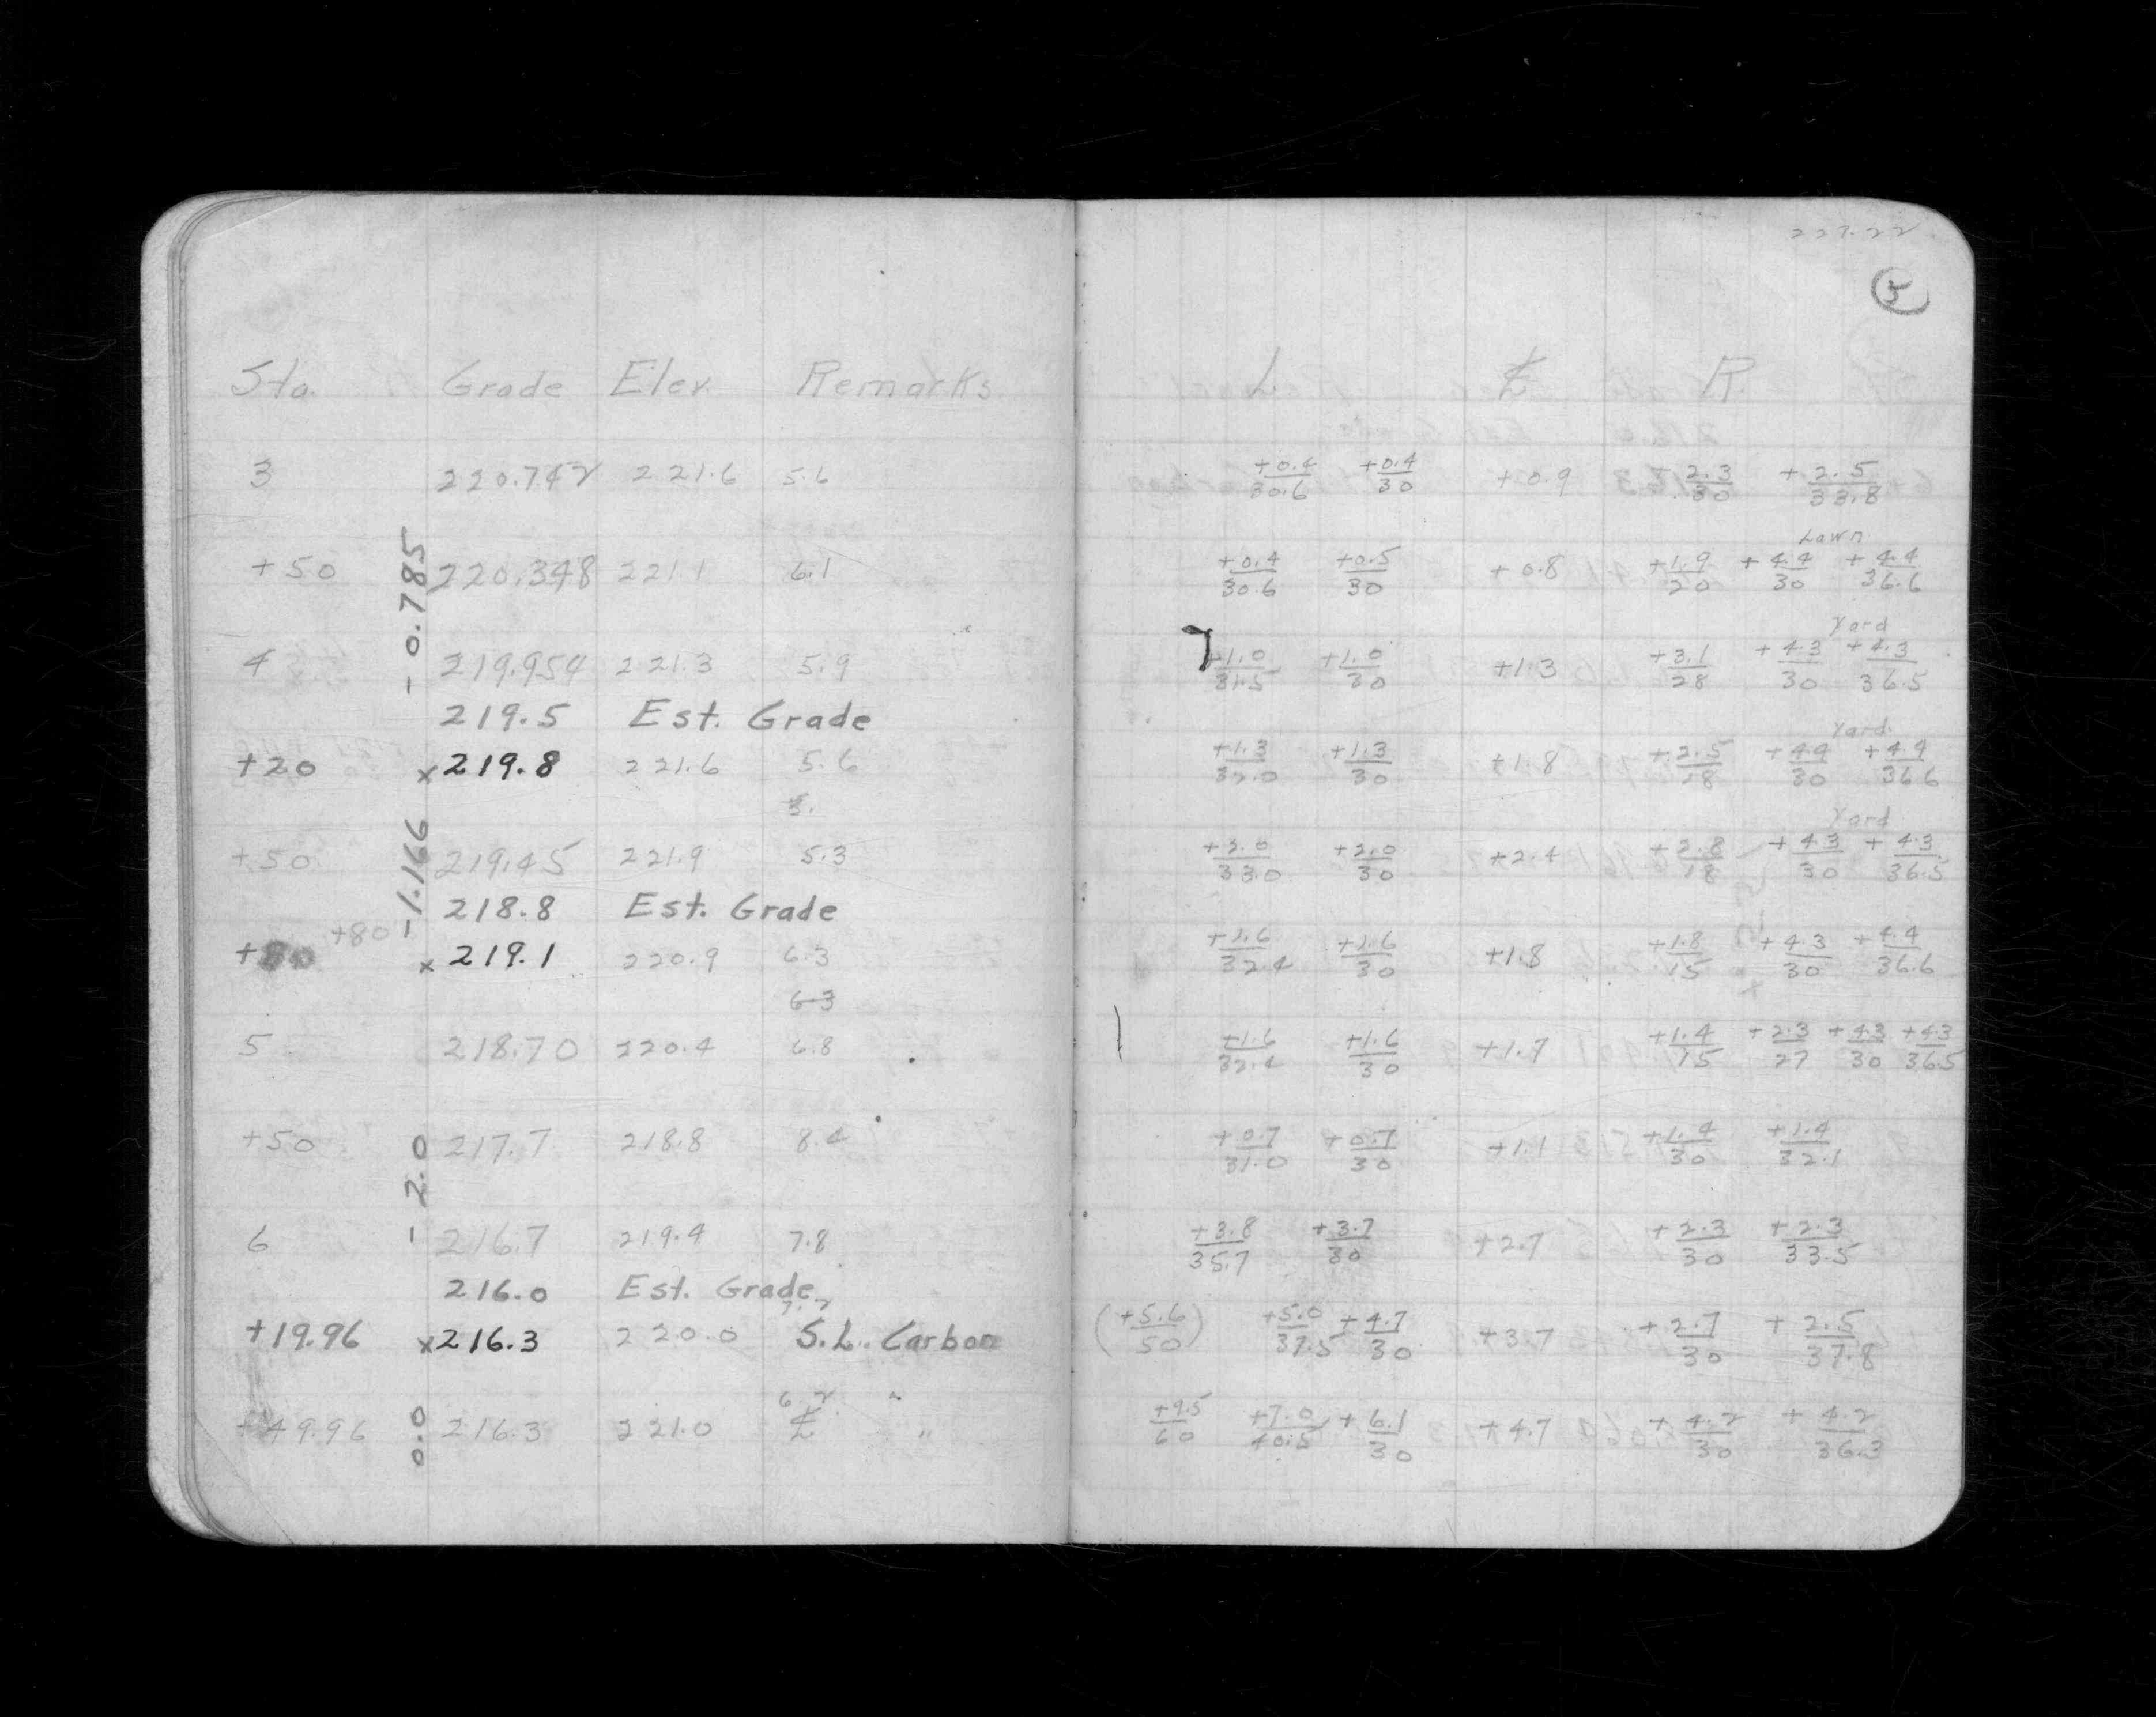 227.22
5
Sta. Grade Elev. Remarks L. ℄ R.
3 220.742 221.6 5.6 +0.4/30.6 +0.4/30 +0.9 +2.3/30 +2.5/33.8
Lawn
+50 220.348 221.1 6.1 +0.4/30.6 +0.5/30 +0.8 +1.9/20 +4.4/30 +4.4/36.6
- 0.785
Yard
4 219.954 221.3 5.9 +1.0/31.5 +1.0/30 +1.3 +3.1/28 +4.3/30 +4.3/36.5
219.5 Est. Grade
Yard
+20 x219.8 221.6 5.6 +1.3/32.0 +1.3/30 +1.8 +2.5/18 +4.4/30 +4.4/36.6
Yard
+50 219.45 221.9 5.3 +2.0/33.0 +2.0/30 +2.4 +2.8/18 +4.3/30 +4.3/36.5
-1.166
218.8 Est. Grade
+80 +80 x 219.1 220.9 6.3 +1.6/32.4 +1.6/30 +1.8 +1.8/15 +4.3/30 +4.4/36.6
6.3
5 218.70 220.4 6.8 +1.6/32.4 +1.6/30 +1.7 +1.4/15 +2.3/27 +4.3/30 +4.3/36.5
+50 217.7 218.8 8.4 +0.7/31.0 +0.7/30 +1.1 +1.4/30 +1.4/32.1
- 2.0
6 216.7 219.4 7.8 +3.8/35.7 +3.7/30 +2.7 +2.3/30 +2.3/33.5
216.0 Est. Grade
7.2
+19.96 x216.3 220.0 S.L. Carbon (+5.6/50) +5.0/37.5 +4.7/30 +3.7 +2.7/30 +2.5/37.8
6.2 "
+49.96 216.3 221.0 ℄ " +9.5/60 +7.0/40.5 +6.1/30 +4.7 +4.2/30 +4.2/36.3
0.0